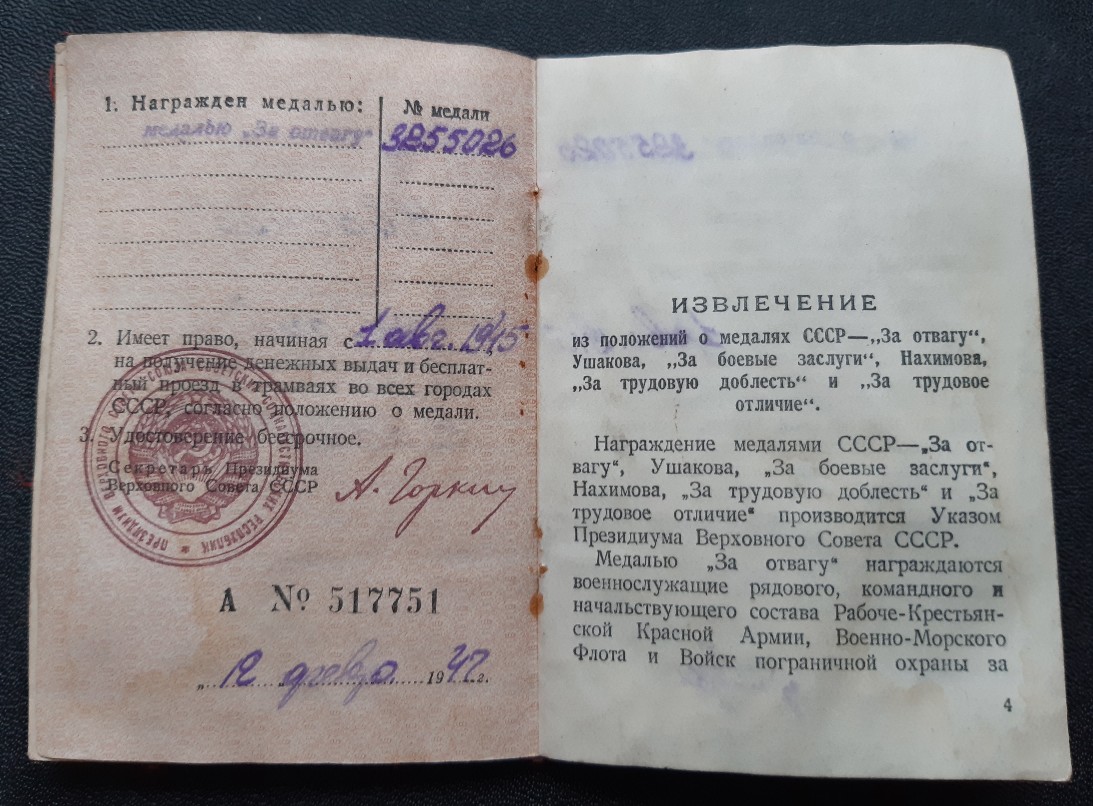 1. Награжден медалью:
№ медали
медалью „За отвагу“
3255026
2. Имеет право, начиная с 1 авг. 1945
на получение денежных выдач и бесплат-
ный проезд в трамваях во всех городах
СССР, согласно положению о медали.
3. Удостоверение бессрочное.
Секретарь Президиума
Верховного Совета СССР
А. Горкин
ПРЕЗИДИУМ ВЕРХОВНОГО СОВЕТА СОЮЗА СОВЕТСКИХ СОЦИАЛИСТИЧЕСКИХ РЕСПУБЛИК
А № 517751
„12 февр. 1947 г.
ИЗВЛЕЧЕНИЕ
из положений о медалях СССР—„За отвагу“,
Ушакова, „За боевые заслуги“, Нахимова,
„За трудовую доблесть“ и „За трудовое
отличие“.
Награждение медалями СССР—„За от-
вагу“, Ушакова, „За боевые заслуги“,
Нахимова, „За трудовую доблесть“ и „За
трудовое отличие“ производится Указом
Президиума Верховного Совета СССР.
Медалью „За отвагу“ награждаются
военнослужащие рядового, командного и
начальствующего состава Рабоче-Крестьян-
ской Красной Армии, Военно-Морского
Флота и Войск пограничной охраны за
4